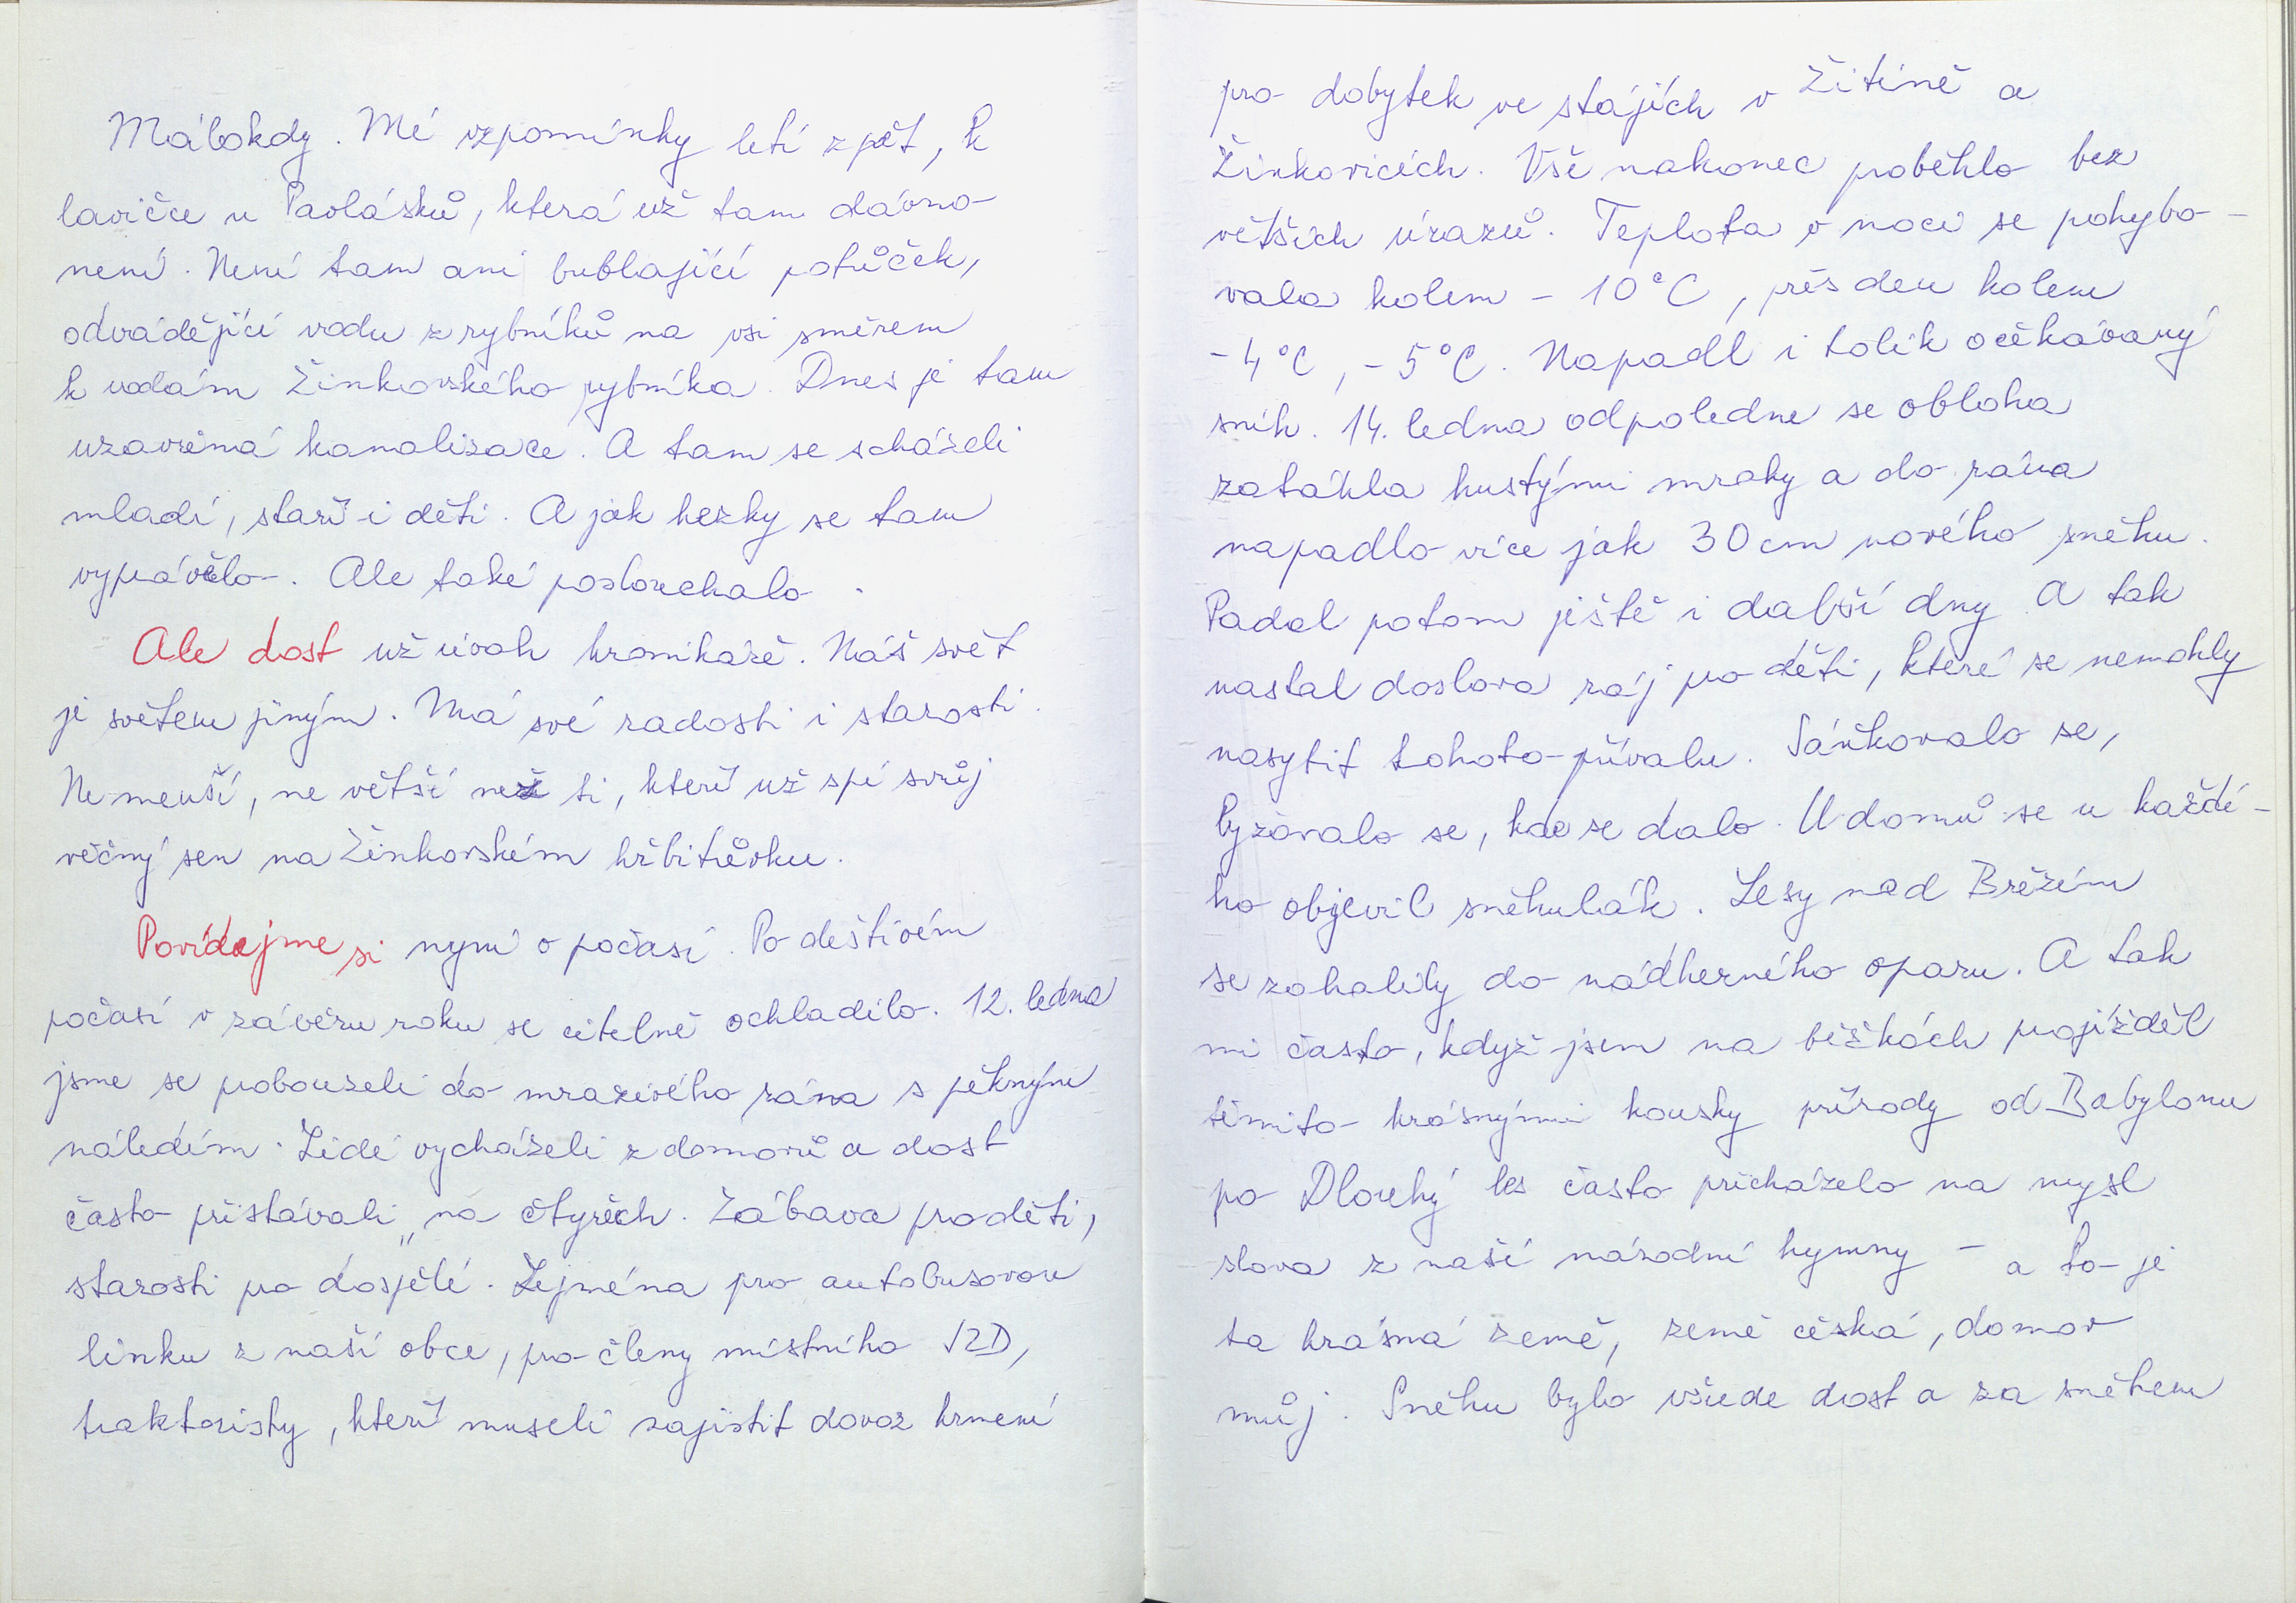 Málokdy. Mé vzpomínky letí zpět, k
lavičce u Pavlásků, která už tam dávno
není. Není tam ani bublající potůček,
odvádějící vodu z rybníků na vsi směrem
k vodám Žinkovského rybníka. Dnes je tam
uzavřená kanalizace. A tam se scházeli
mladí, staří i děti. A jak hezky se tam
vyprávělo. Ale také poslouchalo.
Ale dost už úvah kronikáře. Náš svět
je světem jiným. Má své radosti i starosti.
Ne menší, ne větší než ti, kteří už spí svůj
věčný sen na Žinkovském hřbitůvku.
Povídejme si nyní o počasí. Po deštivém
počasí v závěru roku se citelně ochladilo. 12. ledna
jsme se probouzeli do mrazivého rána s pěkným
náledím. Lidé vycházeli z domovů a dost
často přistávali „na čtyřech. Zábava pro děti,
starosti pro dospělé. Zejména pro autobusovou
linku z naší obce, pro členy místního JZD,
traktoristy, kteří museli zajistit dovoz krmení
pro dobytek ve stájích v Žitíně a
Žinkovicích. Vše nakonec proběhlo bez
větších úrazů. Teplota v noci se pohybo-
vala kolem - 10°C, přes den kolem
- 4°C, - 5°C. Napadl i tolik očekávaný
sníh. 14. ledna odpoledne se obloha
zatáhla hustými mraky a do rána
napadlo více jak 30 cm nového sněhu.
Padal potom ještě i další dny. A tak
nastal doslova ráj pro děti, které se nemohly
nasytit tohoto přívalu. Sáňkovalo se,
lyžovalo se, kde se dalo. U domů se u každé-
ho objevil sněhulák. Lesy nad Březím
se zahalily do nádherného oparu. A tak
mi často, když jsem na běžkách projížděl
těmito krásnými kousky přírody od Babylonu
po Dlouhý les často přicházelo na mysl
slova z naší národní hymny - a to je
ta krásná země, země česká, domov
můj. Sněhu bylo všude dost a za sněhem